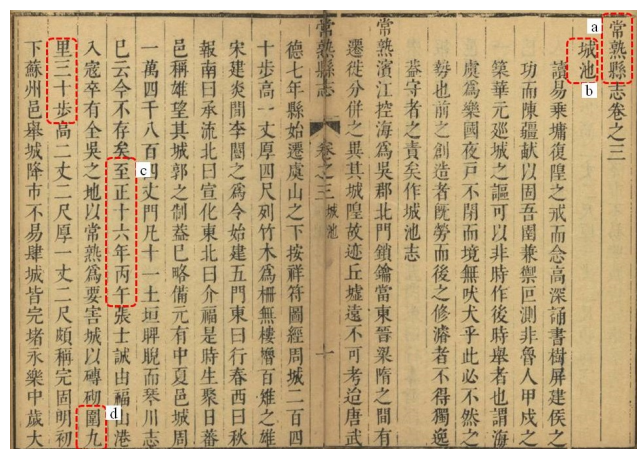 a
常熟縣志卷之三
b
城池
讀易乘墉復隍之戒而念高深誦書樹屏建侯之
功而陳疆獻以固吾圉兼禦叵測非魯人甲戍之
築華元廵城之謳可以非時作後時舉者也謂海
虞爲樂國夜戸不閉而境無吠犬乎此必不然之
勢也前之創造者旣勞而後之修濬者不得獨逸
葢守者之責矣作城池志
常熟濱江控海爲吳郡北門鎖鑰當東晉曁隋之間有
遷徙分併之異其城隍故迹丘墟遠不可考迨唐武
常熟縣志 卷之三 城池 十
德七年縣始遷虞山之下按祥符圖經周城二百四
十步高一丈厚四尺列竹木爲柵無樓櫓百雉之雄
宋建炎間李闓之爲令始建五門東曰行春西曰秋
報南曰承流北曰宣化東北曰介福是時生聚日蕃
邑稱雄望其城郭之制葢巳略備元有中夏邑城周
一萬四千八百四丈門凡十一土垣脾睨而琴川志
c
巳云今不存矣至正十六年丙午張士誠由福山港
入寇卒有全吳之地以常熟爲要害城以磚砌圍九
d
里三十步高二丈二尺厚一丈二尺頗稱完固明初
下蘇州邑舉城降市不易肆城皆完堵永樂中歲大